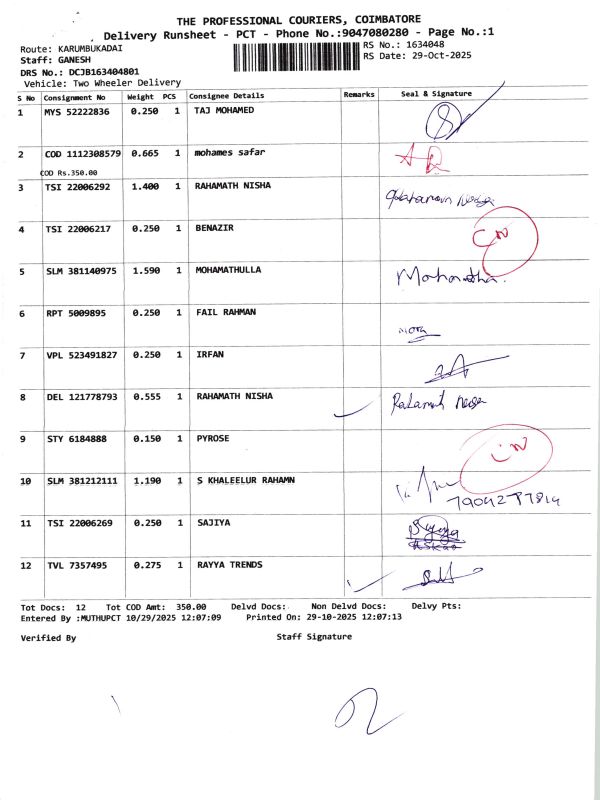 THE PROFESSIONAL COURIERS, COIMBATORE
Delivery Runsheet - PCT - Phone No.:9047080280 - Page No.:1
Route: KARUMBUKADAI RS No.: 1634048
Staff: GANESH RS Date: 29-Oct-2025
DRS No.: DCJB163404801
Vehicle: Two Wheeler Delivery
S No Consignment No Weight PCS Consignee Details Remarks Seal & Signature
1 MYS 52222836 0.250 1 TAJ MOHAMED
2 COD 1112308579 0.665 1 mohames safar
COD Rs.350.00
3 TSI 22006292 1.400 1 RAHAMATH NISHA
4 TSI 22006217 0.250 1 BENAZIR
5 SLM 381140975 1.590 1 MOHAMATHULLA
6 RPT 5009895 0.250 1 FAIL RAHMAN
7 VPL 523491827 0.250 1 IRFAN
8 DEL 121778793 0.555 1 RAHAMATH NISHA
9 STY 6184888 0.150 1 PYROSE
10 SLM 381212111 1.190 1 S KHALEELUR RAHAMN
11 TSI 22006269 0.250 1 SAJIYA
12 TVL 7357495 0.275 1 RAYYA TRENDS
Tot Docs: 12 Tot COD Amt: 350.00 Delvd Docs: Non Delvd Docs: Delvy Pts:
Entered By :MUTHUPCT 10/29/2025 12:07:09 Printed On: 29-10-2025 12:07:13
Verified By Staff Signature